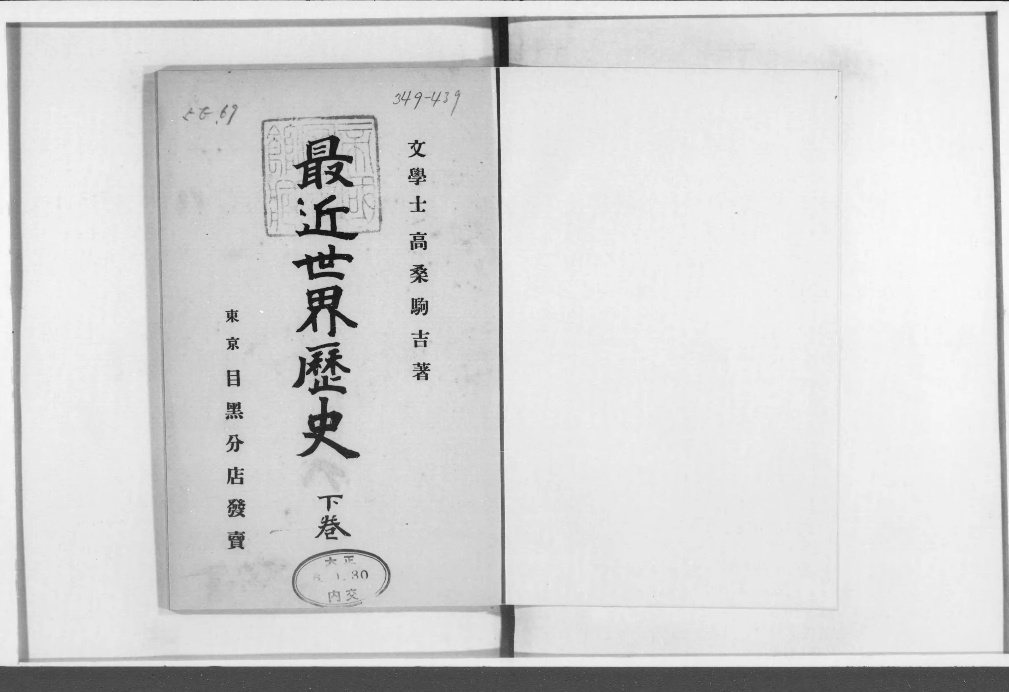 349-439
文學士 高桑駒吉著
最近世界歷史
下卷
東京 目黑分店發賣
大正
30
內交